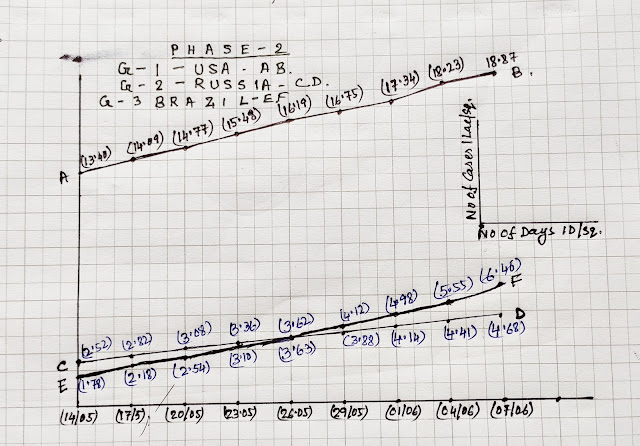 PHASE-2
G-1-USA-AB.
G-2-RUSSIA-C.D.
G-3 BRAZIL-EF
(13.40) (14.09) (14.77) (15.48) (16.19) (16.75) (17.34) (18.23) 18.87
A B.
No of Cases 1 Lac/sq.
No of Days 1D/sq.
(2.52) (2.82) (3.08) (3.36) (3.62) (4.12) (4.98) (5.55) (6.46)
C F
E D
(1.78) (2.18) (2.54) (3.10) (3.63) (3.88) (4.14) (4.41) (4.68)
(14/05) (17/5) (20/05) (23.05) (26.05) (29/05) (01/06) (04/06) (07/06)